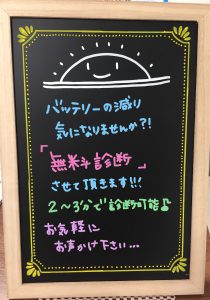 バッテリーの減り
気になりませんか?!
「無料診断」
させて頂きます!!!
2〜3分で診断可能♪
お気軽に
お声かけ下さい...